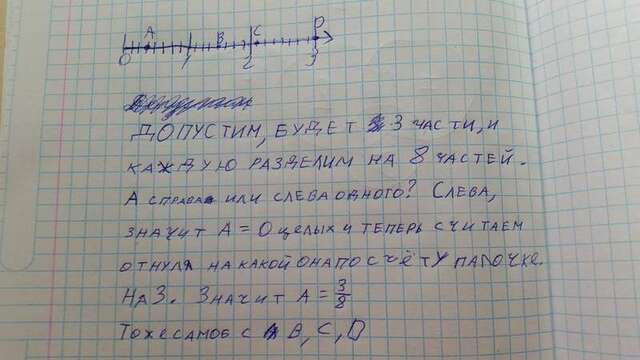 A B C D
0 1 2 3
ДОПУСТИМ, БУДЕТ 3 ЧАСТИ, И
КАЖДУЮ РАЗДЕЛИМ НА 8 ЧАСТЕЙ.
А СПРАВА ИЛИ СЛЕВА ОДНОГО? СЛЕВА,
ЗНАЧИТ А = 0 ЦЕЛЫХ И ТЕПЕРЬ СЧИТАЕМ
ОТ НУЛЯ НА КАКОЙ ОНА ПО СЧЁТУ ПАЛОЧКЕ.
НА 3. ЗНАЧИТ А = 3/8
ТОЖЕ САМОЕ С B, C, D